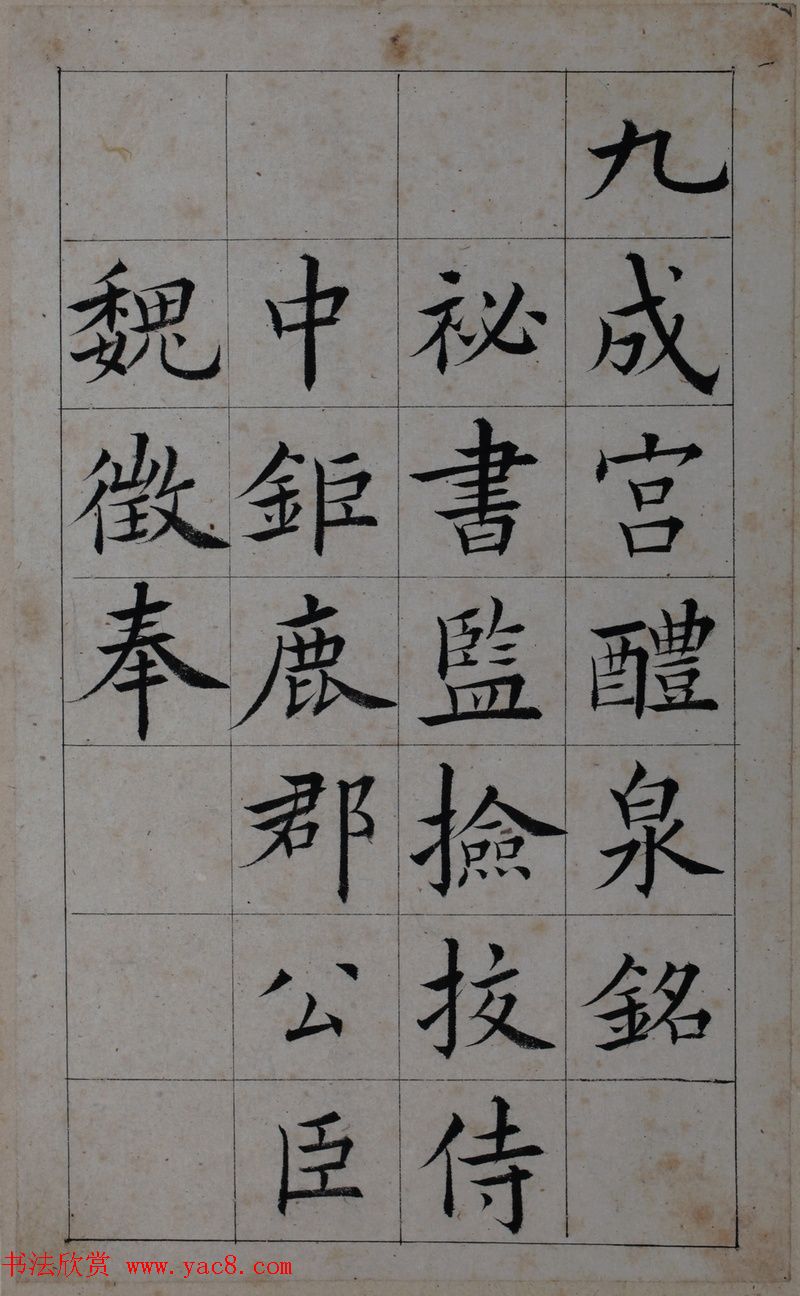 九成宮醴泉銘
祕書監撿挍侍
中鉅鹿郡公臣
魏徵奉
书法欣赏 www.yac8.com